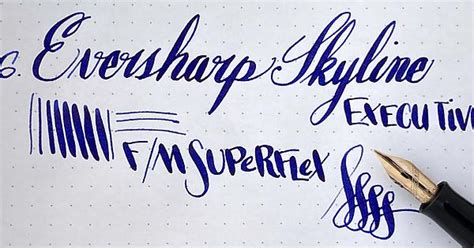 6. Eversharp Skyline
EXECUTIV
F/M SUPeRFLeX